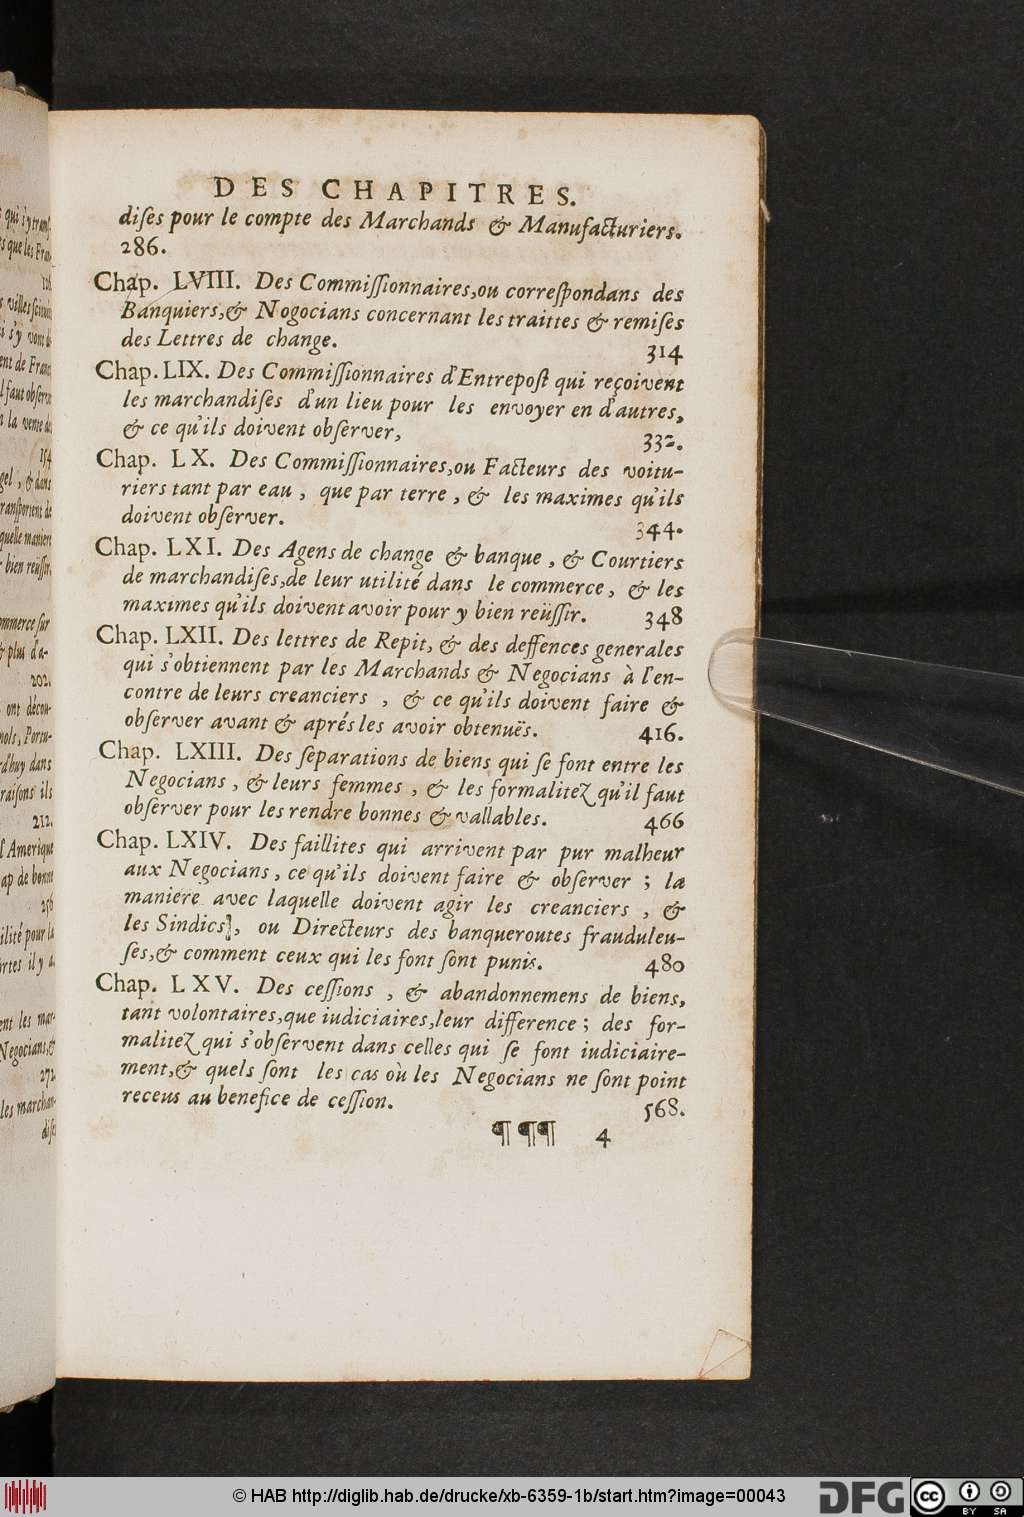 DES CHAPITRES.
diſes pour le compte des Marchands & Manufacturiers.
286.
Chap. LVIII. Des Commiſſionnaires,ou correſpondans des
Banquiers,& Nogocians concernant les traittes & remiſes
des Lettres de change.
314
Chap. LIX. Des Commiſſionnaires d'Entrepoſt qui reçoivent
les marchandiſes d'un lieu pour les envoyer en d'autres,
& ce qu'ils doivent obſerver,
332.
Chap. LX. Des Commiſſionnaires,ou Facteurs des voitu-
riers tant par eau , que par terre , & les maximes qu'ils
doivent obſerver.
344.
Chap. LXI. Des Agens de change & banque , & Courtiers
de marchandiſes,de leur utilité dans le commerce , & les
maximes qu'ils doivent avoir pour y bien reüſſir.
348
Chap. LXII. Des lettres de Repit, & des deffences generales
qui s'obtiennent par les Marchands & Negocians à l'en-
contre de leurs creanciers , & ce qu'ils doivent faire &
obſerver avant & aprés les avoir obtenuës.
416.
Chap. LXIII. Des ſeparations de biens qui ſe font entre les
Negocians , & leurs femmes , & les formalitez qu'il faut
obſerver pour les rendre bonnes & vallables.
466
Chap. LXIV. Des faillites qui arrivent par pur malheur
aux Negocians , ce qu'ils doivent faire & obſerver ; la
maniere avec laquelle doivent agir les creanciers , &
les Sindics], ou Directeurs des banqueroutes frauduleu-
ſes,& comment ceux qui les font ſont punis.
480
Chap. LXV. Des ceſſions , & abandonnemens de biens,
tant volontaires,que iudiciaires,leur difference ; des for-
malitez qui s'obſervent dans celles qui ſe font iudiciaire-
ment,& quels ſont les cas où les Negocians ne ſont point
receus au benefice de ceſſion.
568.
¶ ¶¶ 4
© HAB http://diglib.hab.de/drucke/xb-6359-1b/start.htm?image=00043
DFG
cc
BY SA